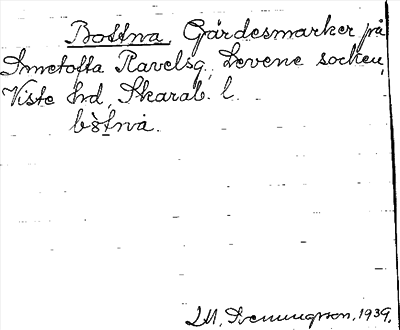 Bottna, Gärdesmarker på
Smetofta Ravelsg., Levene socken,
Viste hd, Skarab. l.
bs̀tnà.
I.M. Svenungsson, 1939.